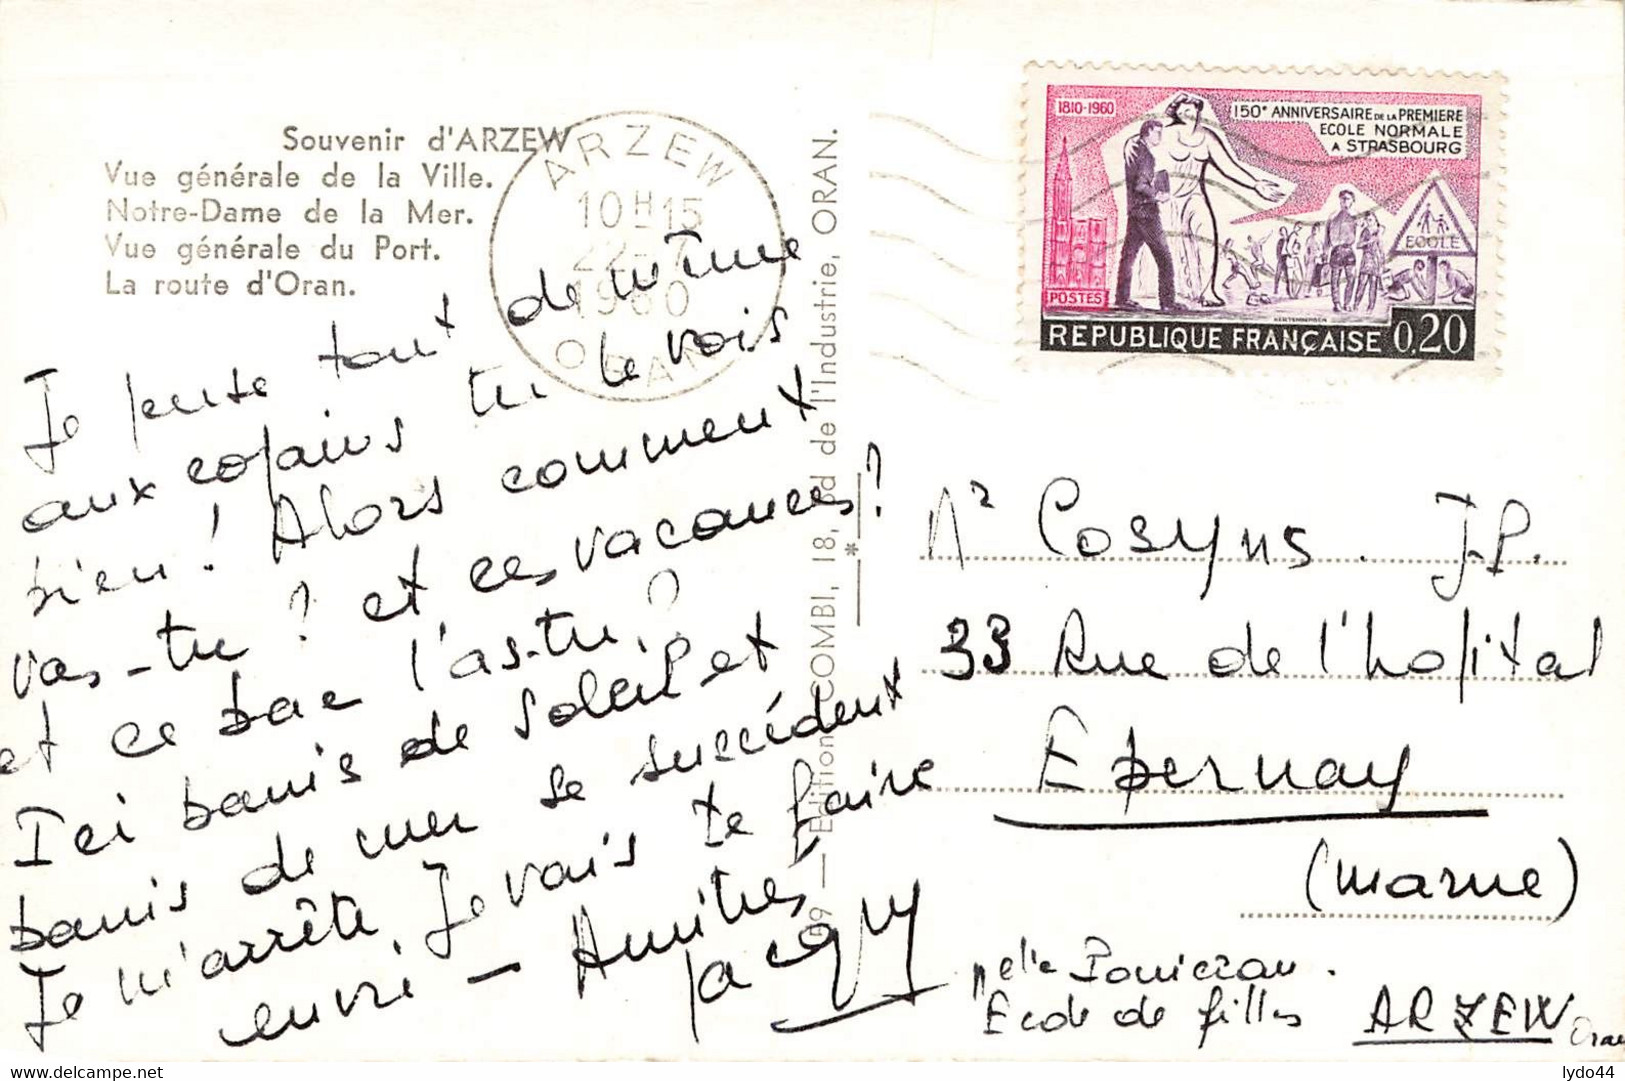 Souvenir d'ARZEW
Vue générale de la Ville.
Notre-Dame de la Mer.
Vue générale du Port.
La route d'Oran.
ARZEW
10H15
22-7
1960
ORAN
1810-1960
150e ANNIVERSAIRE DE LA PREMIERE
ECOLE NORMALE
A STRASBOURG
ECOLE
POSTES
REPUBLIQUE FRANÇAISE 0,20
Je pense tout de même
aux copains tu le vois
bien ! Alors comment
vas-tu ? et ces vacances ?
et ce bac l'as-tu ?
Ici bains de soleil et
bains de mer se succèdent
Je m'arrête Je vais te faire
envie - Amitiés
Jacqy
99 — Edition COMBI, 18, Bd de l'Industrie, ORAN.
*
Mr Cosyns . J.P.
33 Rue de l'hopital
Epernay
(Marne)
Melle
Ecole de filles ARZEW Oran
lydo44